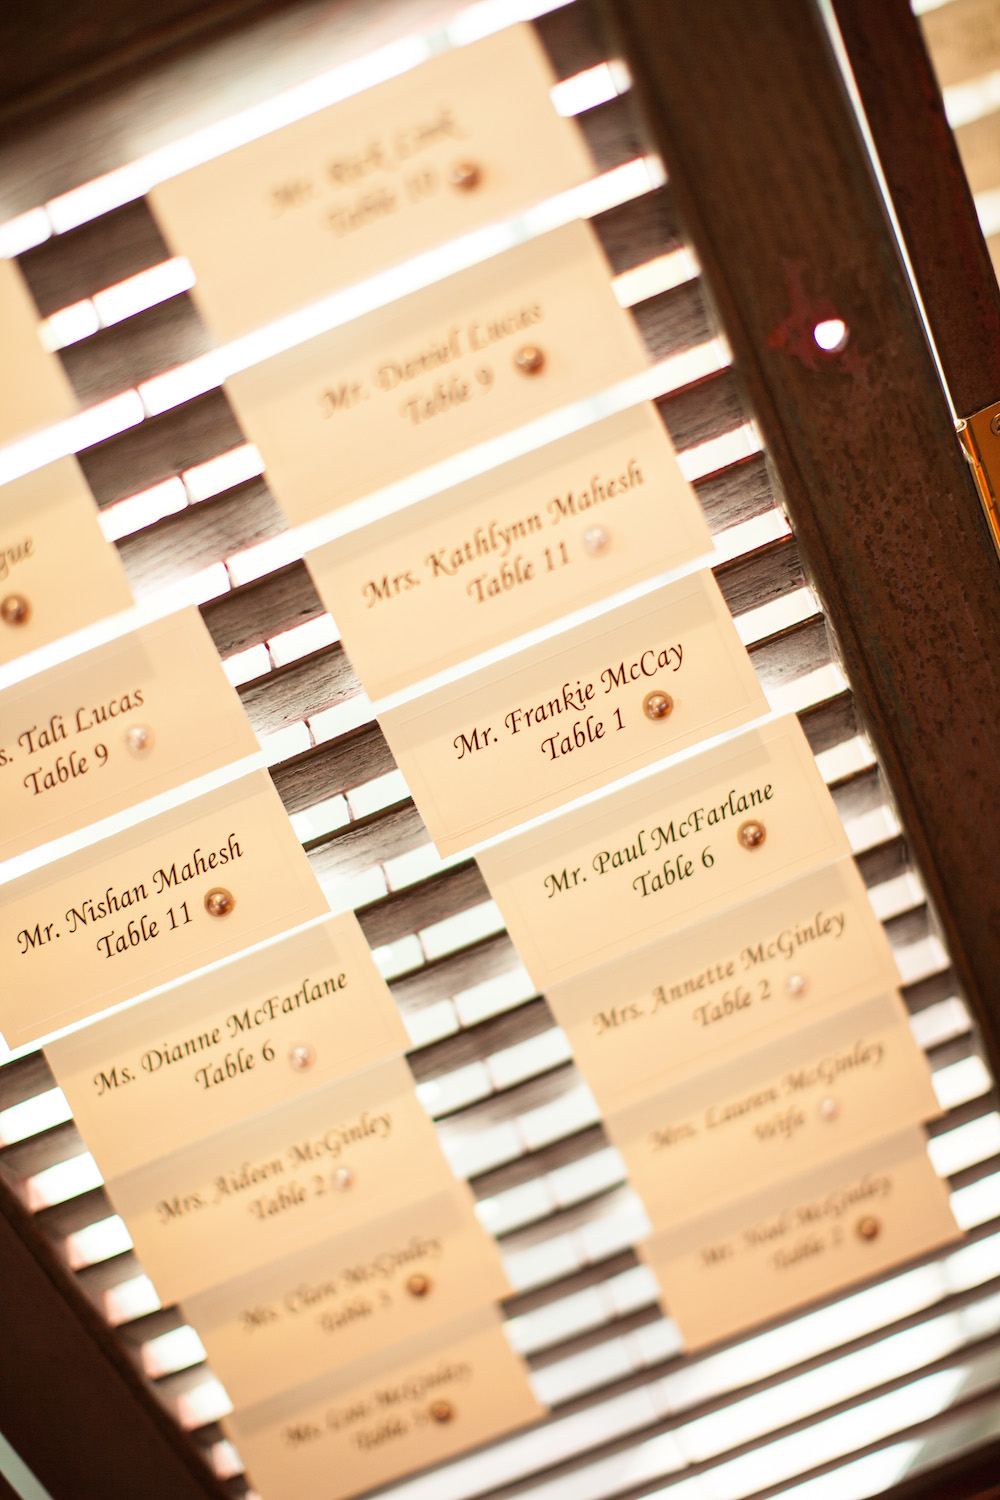 Mr. Rick
Table 10
Mr. Daniel Lucas
Table 9
Mrs. Kathlynn Mahesh
Table 11
Mr. Frankie McCay
Table 1
Mr. Paul McFarlane
Table 6
Mrs. Annette McGinley
Table 2
Mrs. Lauren McGinley
Wife
Mr. McGinley
Table
gue
s. Tali Lucas
Table 9
Mr. Nishan Mahesh
Table 11
Ms. Dianne McFarlane
Table 6
Mrs. Aideen McGinley
Table 2
Ms. McGinley
Table
Ms. McGinley
Table